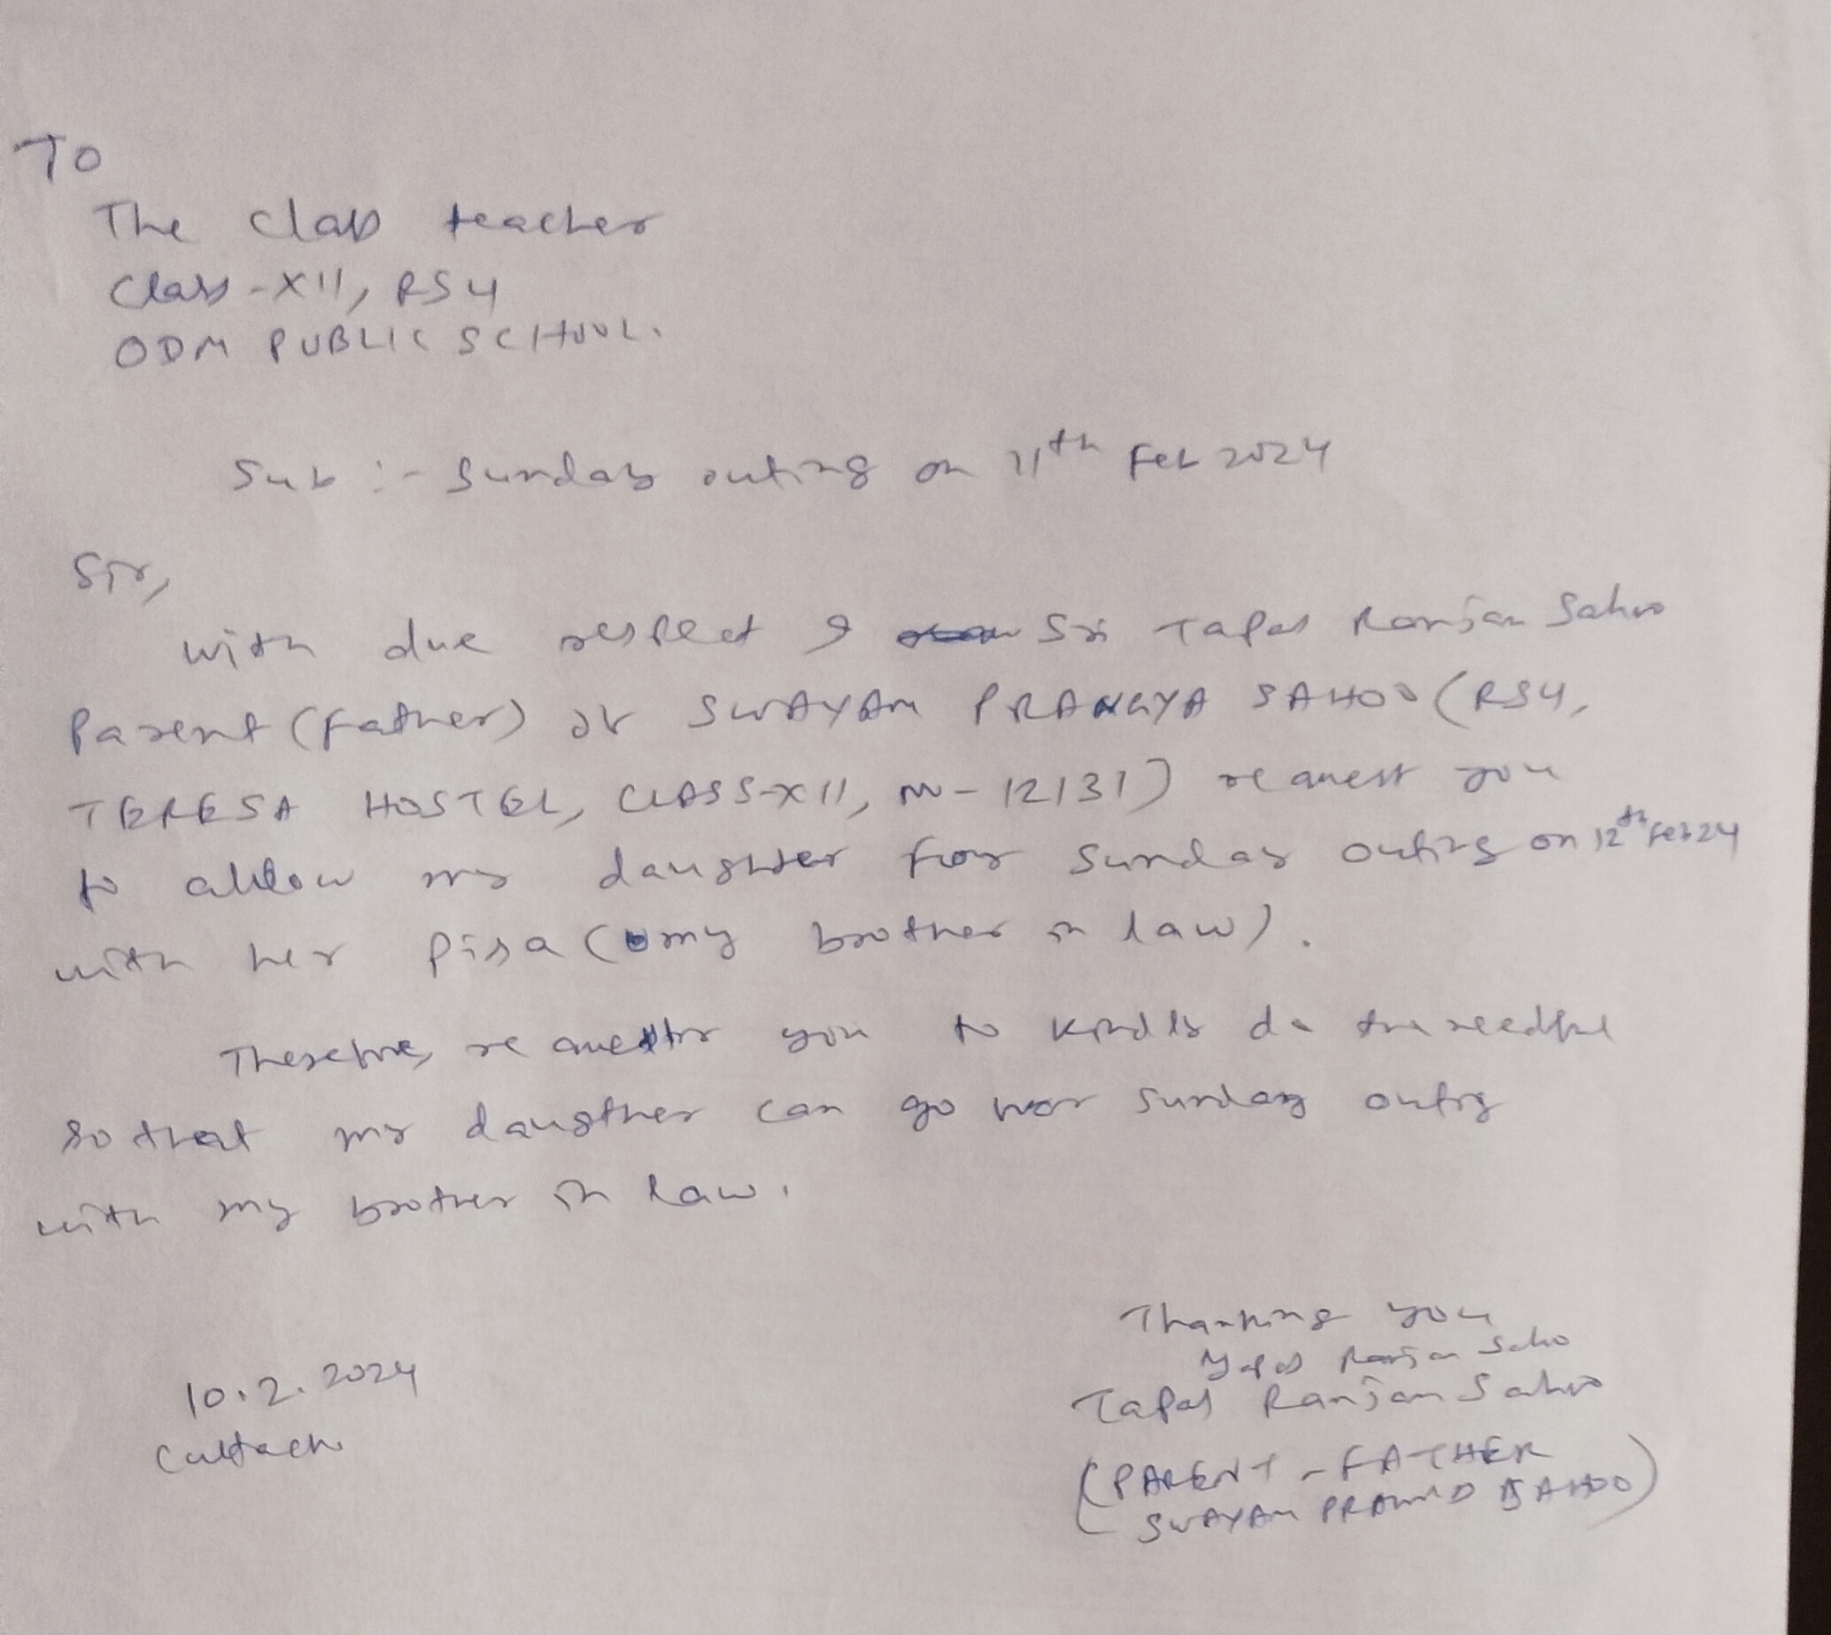 To
The Class teacher
Class-XII, RS4
ODM PUBLIC SCHOOL.
Sub :- Sunday outing on 11th Feb 2024
Sir,
With due respect I Sri Tapas Ranjan Sahoo
Parent (Father) of SWAYAM PRANGYA SAHOO (RS4,
TERESA HOSTEL, CLASS-XII, 12131) request you
to allow my daughter for Sunday outing on 12th Feb 24
with her Pisa (my brother in law).
Therefore, request you to kindly do the needful
so that my daugther can go Sunday outing
with my brother in law.
Thanking you
Tapas Ranjan Sahoo
Tapas Ranjan Sahoo
10.2.2024
Cuttack
(PARENT - FATHER
SWAYAM SAHOO)